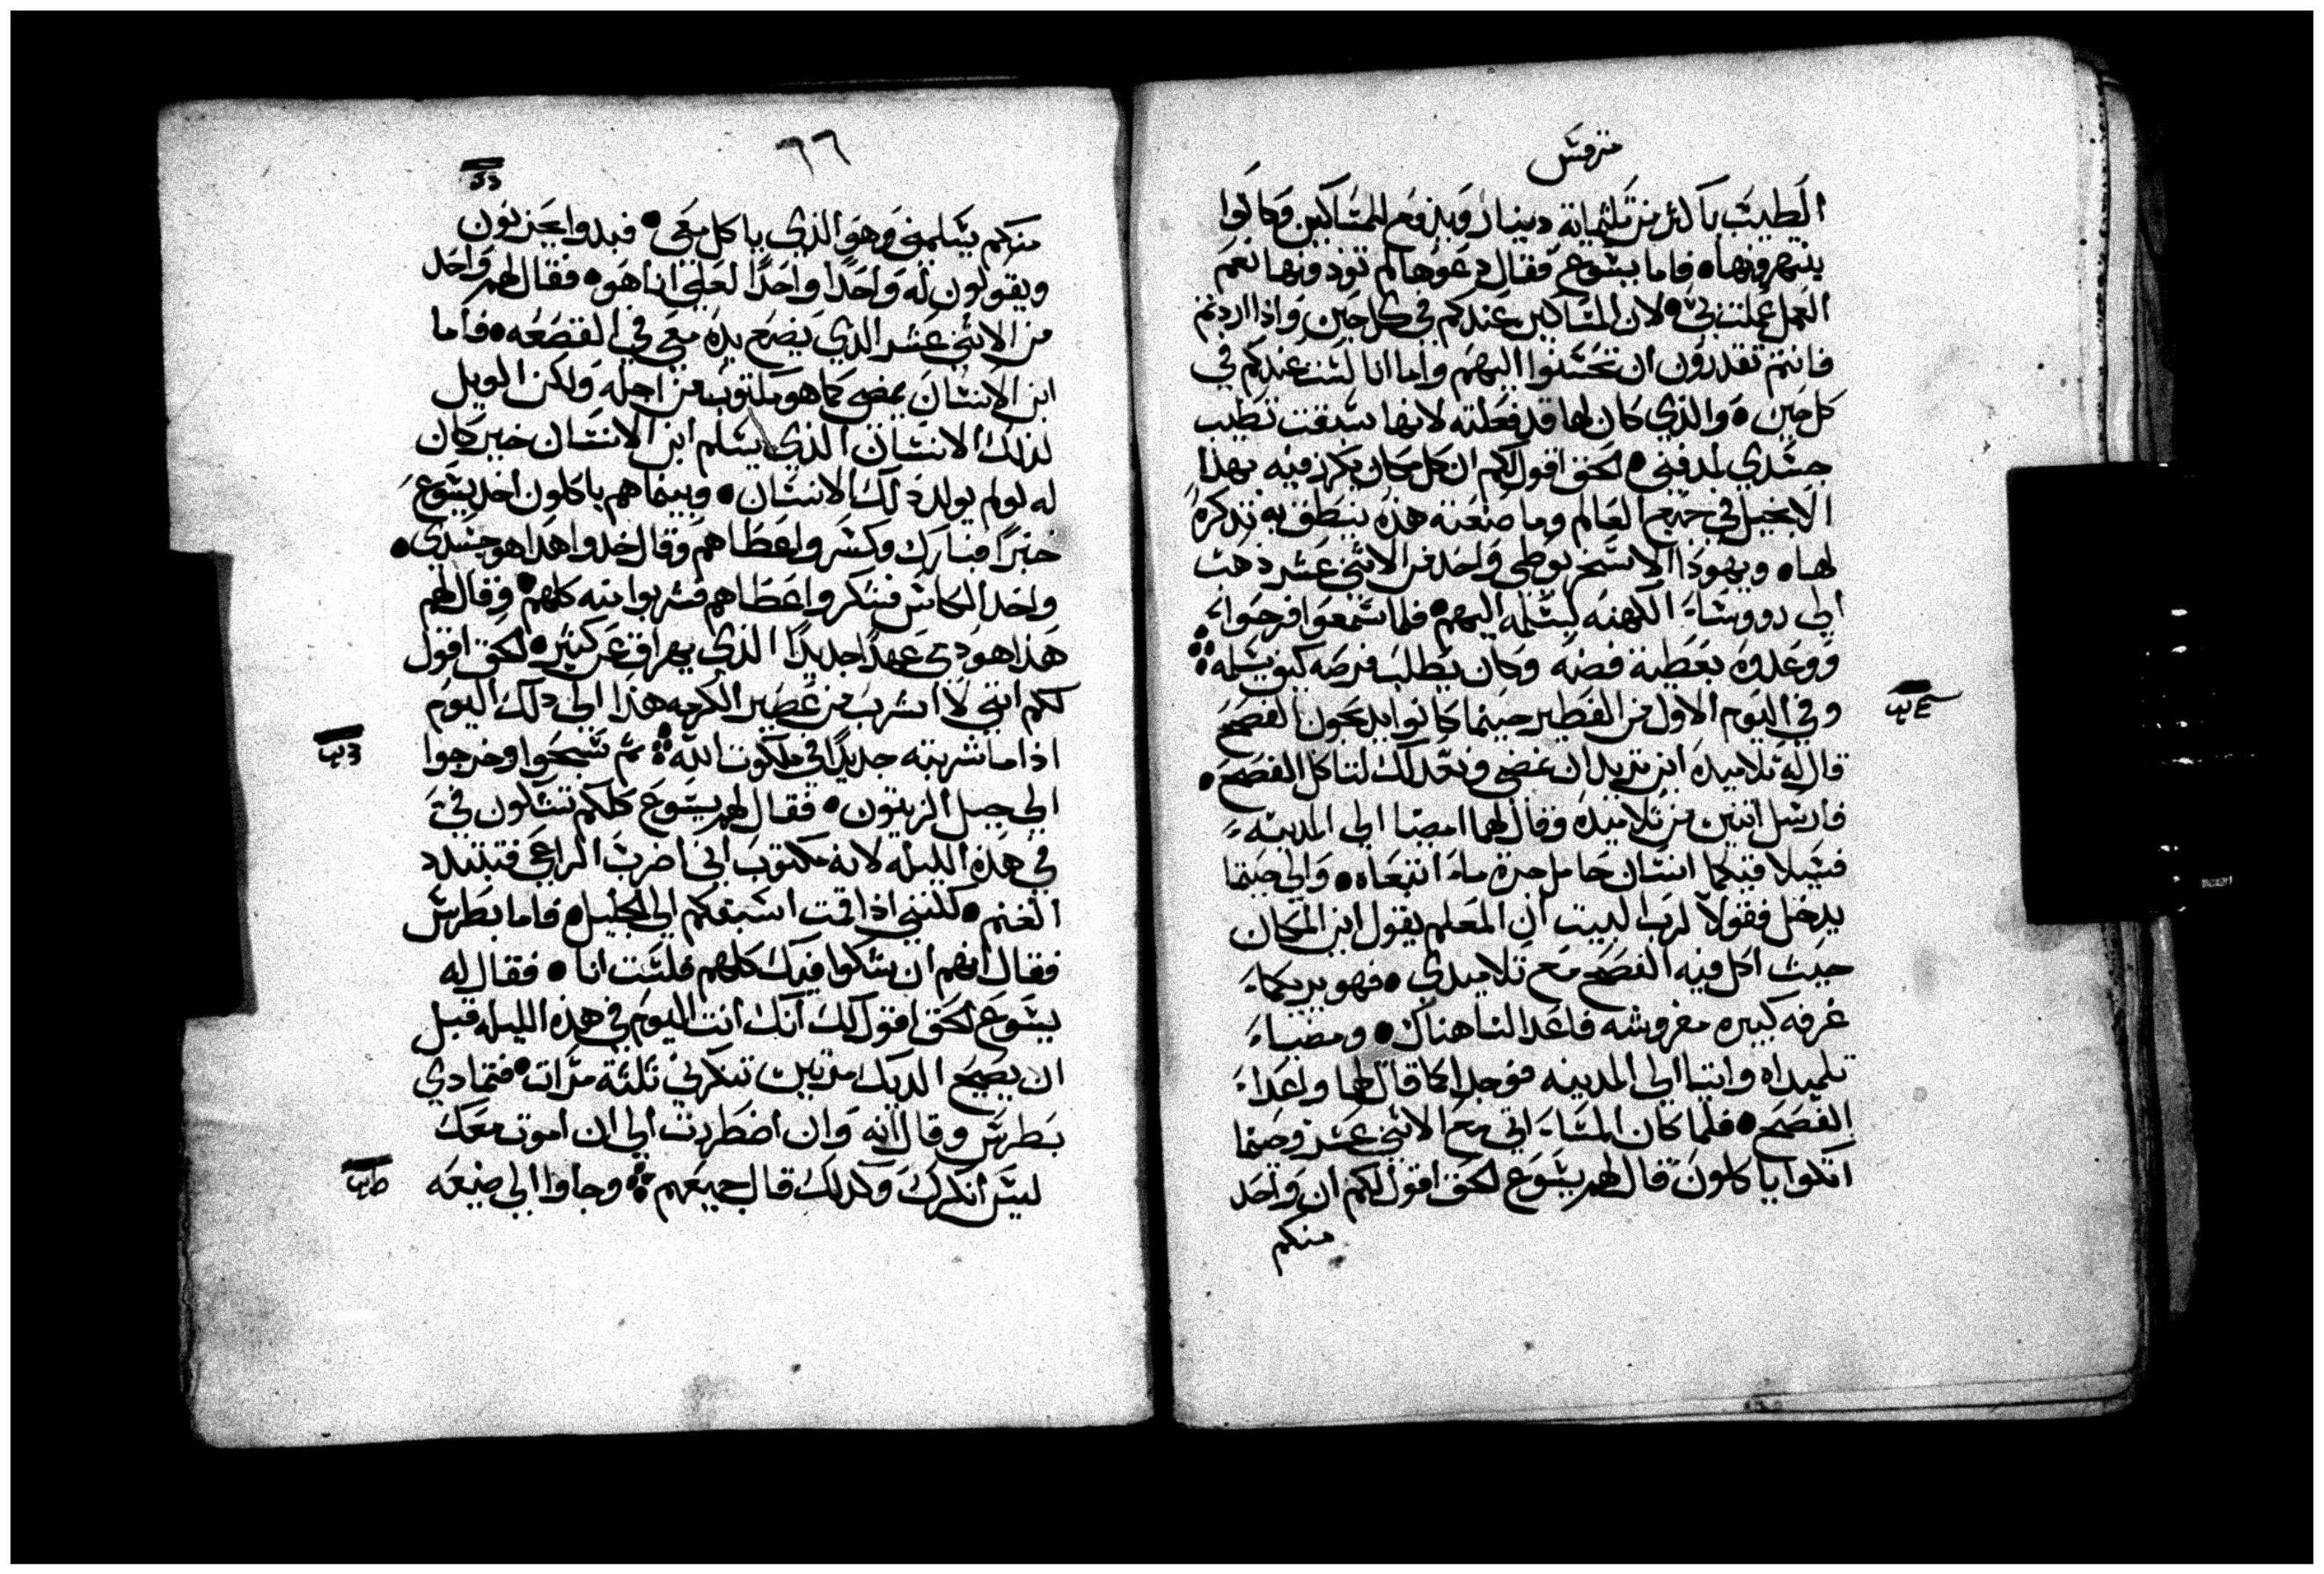 مرقس
الطيب باكثر من ثلثماية دينار ويدفع للمساكين وكانوا
ينتهرونها ۰ فاما يسوع فقال دعوها لم توذونها نعم
العمل عملت بي ۰ لان المساكين عندكم في كل حين واذا اردتم
فانتم تقدرون ان تحسنوا اليهم واما انا لست عندكم في
كل حين ۰ والذي كان لها قد فعلته لانها سبقت تطيب
جسدي لدفني ۰ الحق اقول لكم ان كل مكان يكرز فيه بهذا
الانجيل في جميع العالم وما صنعته هذه ينطق به تذكرة
لها ۰ ويهودا الاسخريوطي واحد من الاثني عشر ذهب
الي رووسَاء الكهنه ليسلمه اليهم ۰ فلما سمعوا فرحوا
ووعدوه بعطية فضه وكان يطلب فرصه كيف يسلمه
وفي اليوم الاول من الفطير حينما كانوا يدبحون الفصح
قال له تلاميده اين تريد ان نمضي ونعد لك لتاكل الفصح ۰
فارسل اتنين من تلاميده وقال لهما امضيا الي المدينه
فسيلاقيكما انسان حامل جرة ماء اتبعاه ۰ والي حيتما
يدخل فقولا لرب البيت ان المعلم يقول اين المكان
حيت اكل فيه الفصح مع تلاميدي ۰ فهو يريكما
غرفه كبيره مفروشه فاعدا لنا هناك ۰ ومضيا
تلميداه واتيا الي المدينه فوجدا كما قال لهما واعدا
الفصح ۰ فلما كان المساء اتي مع الاثني عشر وحيتما
اتكوا ياكلون قال لهم يسوع الحق اقول لكم ان واحد
منكم
٦٦
منكم يسلمني وهو الذي ياكل معي ۰ فبدوا يحزنون
ويقولون له واحدًا واحدًا لعلي انا هو ۰ فقال لهم واحد
من الاثني عشر الذي يضع يده معي في القصعه ۰ فاما
ابن الانسان يمضي كما هو مكتوب من اجله ولكن الويل
لذلك الانسان الذي يسلم ابن الانسان خير كان
له لو لم يولد ذلك الانسان ۰ وبينما هم ياكلون اخد يسوع
خبزًا فبارك وكسر واعطاهم وقال خدوا هدا هو جسدي ۰
واخد الكاس فشكر واعطاهم فشربوا منه كلهم ۰ وقال لهم
هذا هو دمي عهدًا جديدًا الذي يهراق عن كثير ۰ الحق اقول
لكم انني لا اشرب من عصير الكرمه هذا الي دلك اليوم
اذا ما شربته جديدًا في ملكوت الله ثم سبحوا وخرجوا
الي جبل الزيتون ۰ فقال لهم يسوع كلكم تشكون في
في هذه الليله لانه مكتوب اني اضرب الراعي فتتبدد
الغنم ۰ لكنني اذا قمت اسبقكم الي الجليل ۰ فاما بطرس
فقال انهم ان شكوا فيك كلهم فلست انا ۰ فقال له
يسوع الحق اقول لك انك انت اليوم في هذه الليله قبل
ان يصيح الديك مرتين تنكرني ثلثة مرات ۰ فتمادي
بطرس وقال انه وان اضطررت الي ان اموت معك
ليس انكرك وكدلك قال جميعهم وجاوا الي ضيعه